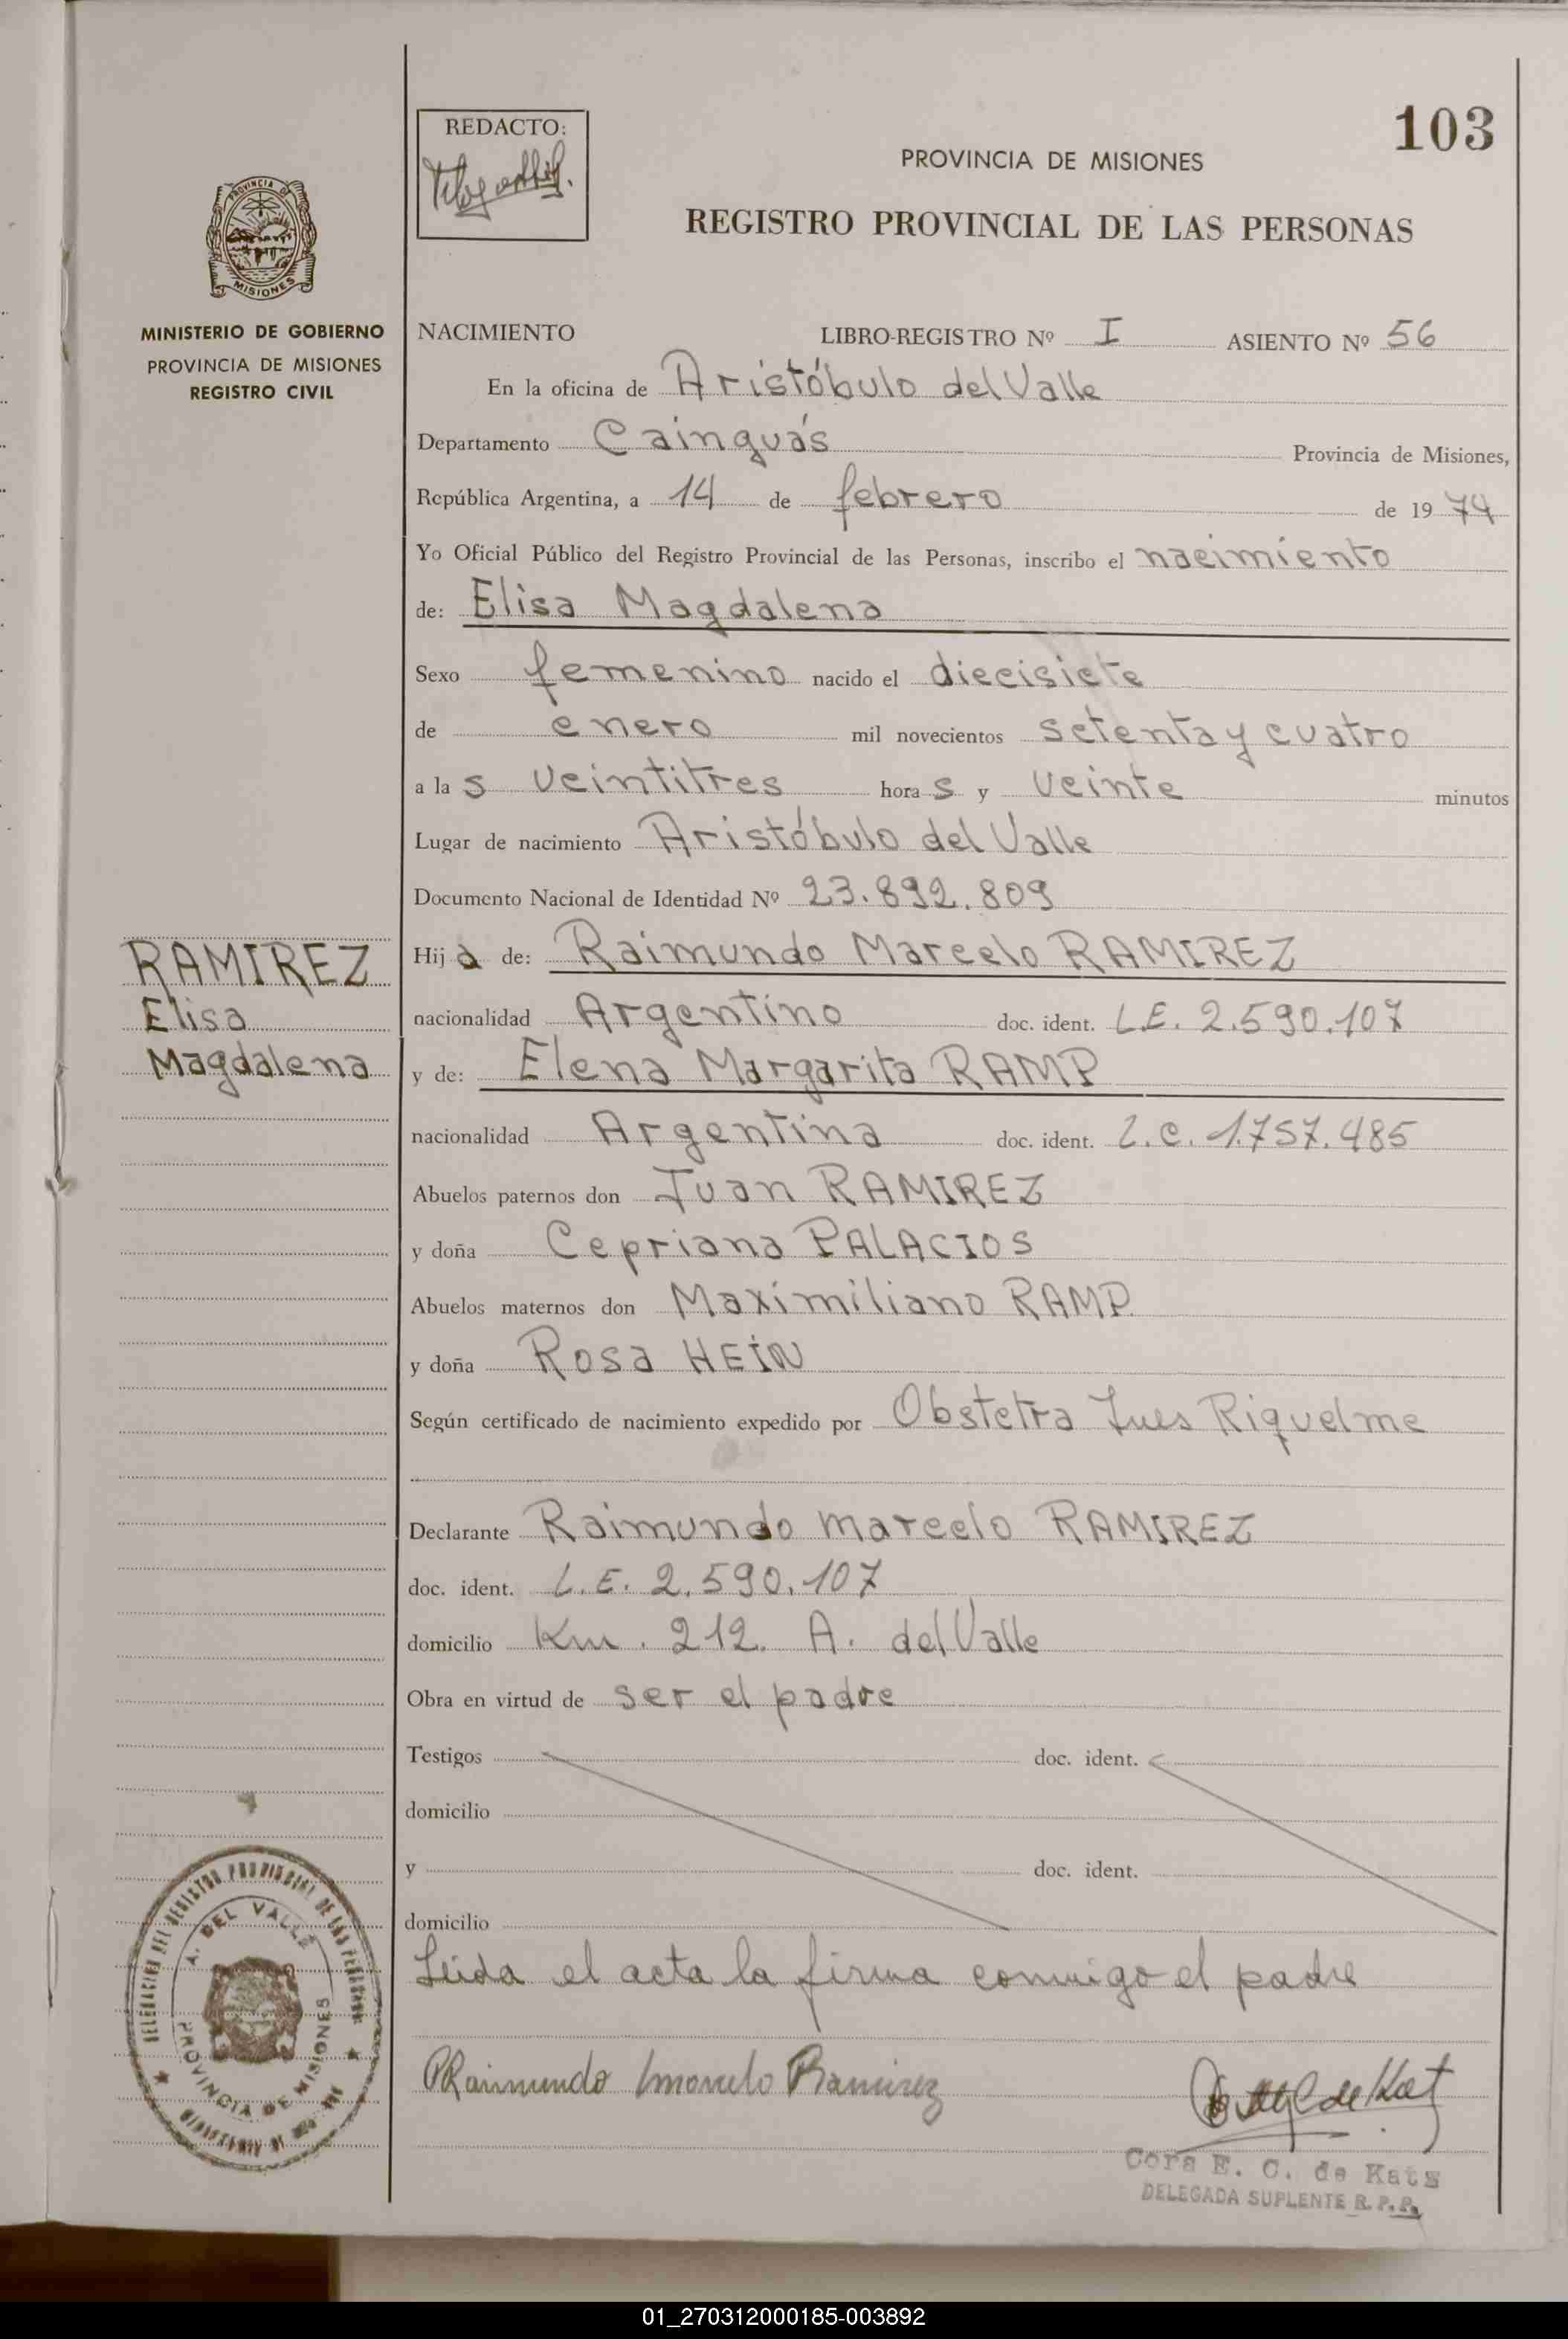 103
REDACTO:
PROVINCIA DE MISIONES
REGISTRO PROVINCIAL DE LAS PERSONAS
PROVINCIA DE
MISIONES
MINISTERIO DE GOBIERNO
PROVINCIA DE MISIONES
REGISTRO CIVIL
NACIMIENTO LIBRO-REGISTRO Nº I ASIENTO Nº 56
En la oficina de Aristóbulo del Valle
Departamento Cainguás Provincia de Misiones,
República Argentina, a 14 de febrero de 1974
Yo Oficial Público del Registro Provincial de las Personas, inscribo el nacimiento
de: Elisa Magdalena
Sexo femenino nacido el diecisiete
de enero mil novecientos setenta y cuatro
a las veintitres horas y veinte minutos
Lugar de nacimiento Aristóbulo del Valle
Documento Nacional de Identidad Nº 23.892.809
RAMIREZ
Elisa
Magdalena
Hija de: Raimundo Marcelo RAMIREZ
nacionalidad Argentino doc. ident. L.E. 2.590.107
y de: Elena Margarita RAMP
nacionalidad Argentina doc. ident. L.C. 1.757.485
Abuelos paternos don Juan RAMIREZ
y doña Cepriana PALACIOS
Abuelos maternos don Maximiliano RAMP.
y doña Rosa HEIN
Según certificado de nacimiento expedido por Obstetra Ines Riquelme
Declarante Raimundo Marcelo RAMIREZ
doc. ident. L.E. 2.590.107
domicilio Km. 212. A. del Valle
Obra en virtud de ser el padre
Testigos doc. ident.
domicilio
y doc. ident.
domicilio
Leida el acta la firma conmigo el padre
Raimundo Marcelo Ramirez
de Kats
Cora E. C. de Kats
DELEGADA SUPLENTE R. P. P.
DELEGACION DEL REGISTRO PROVINCIAL DE LAS PERSONAS
A. DEL VALLE
PROVINCIA DE MISIONES
01_270312000185-003892